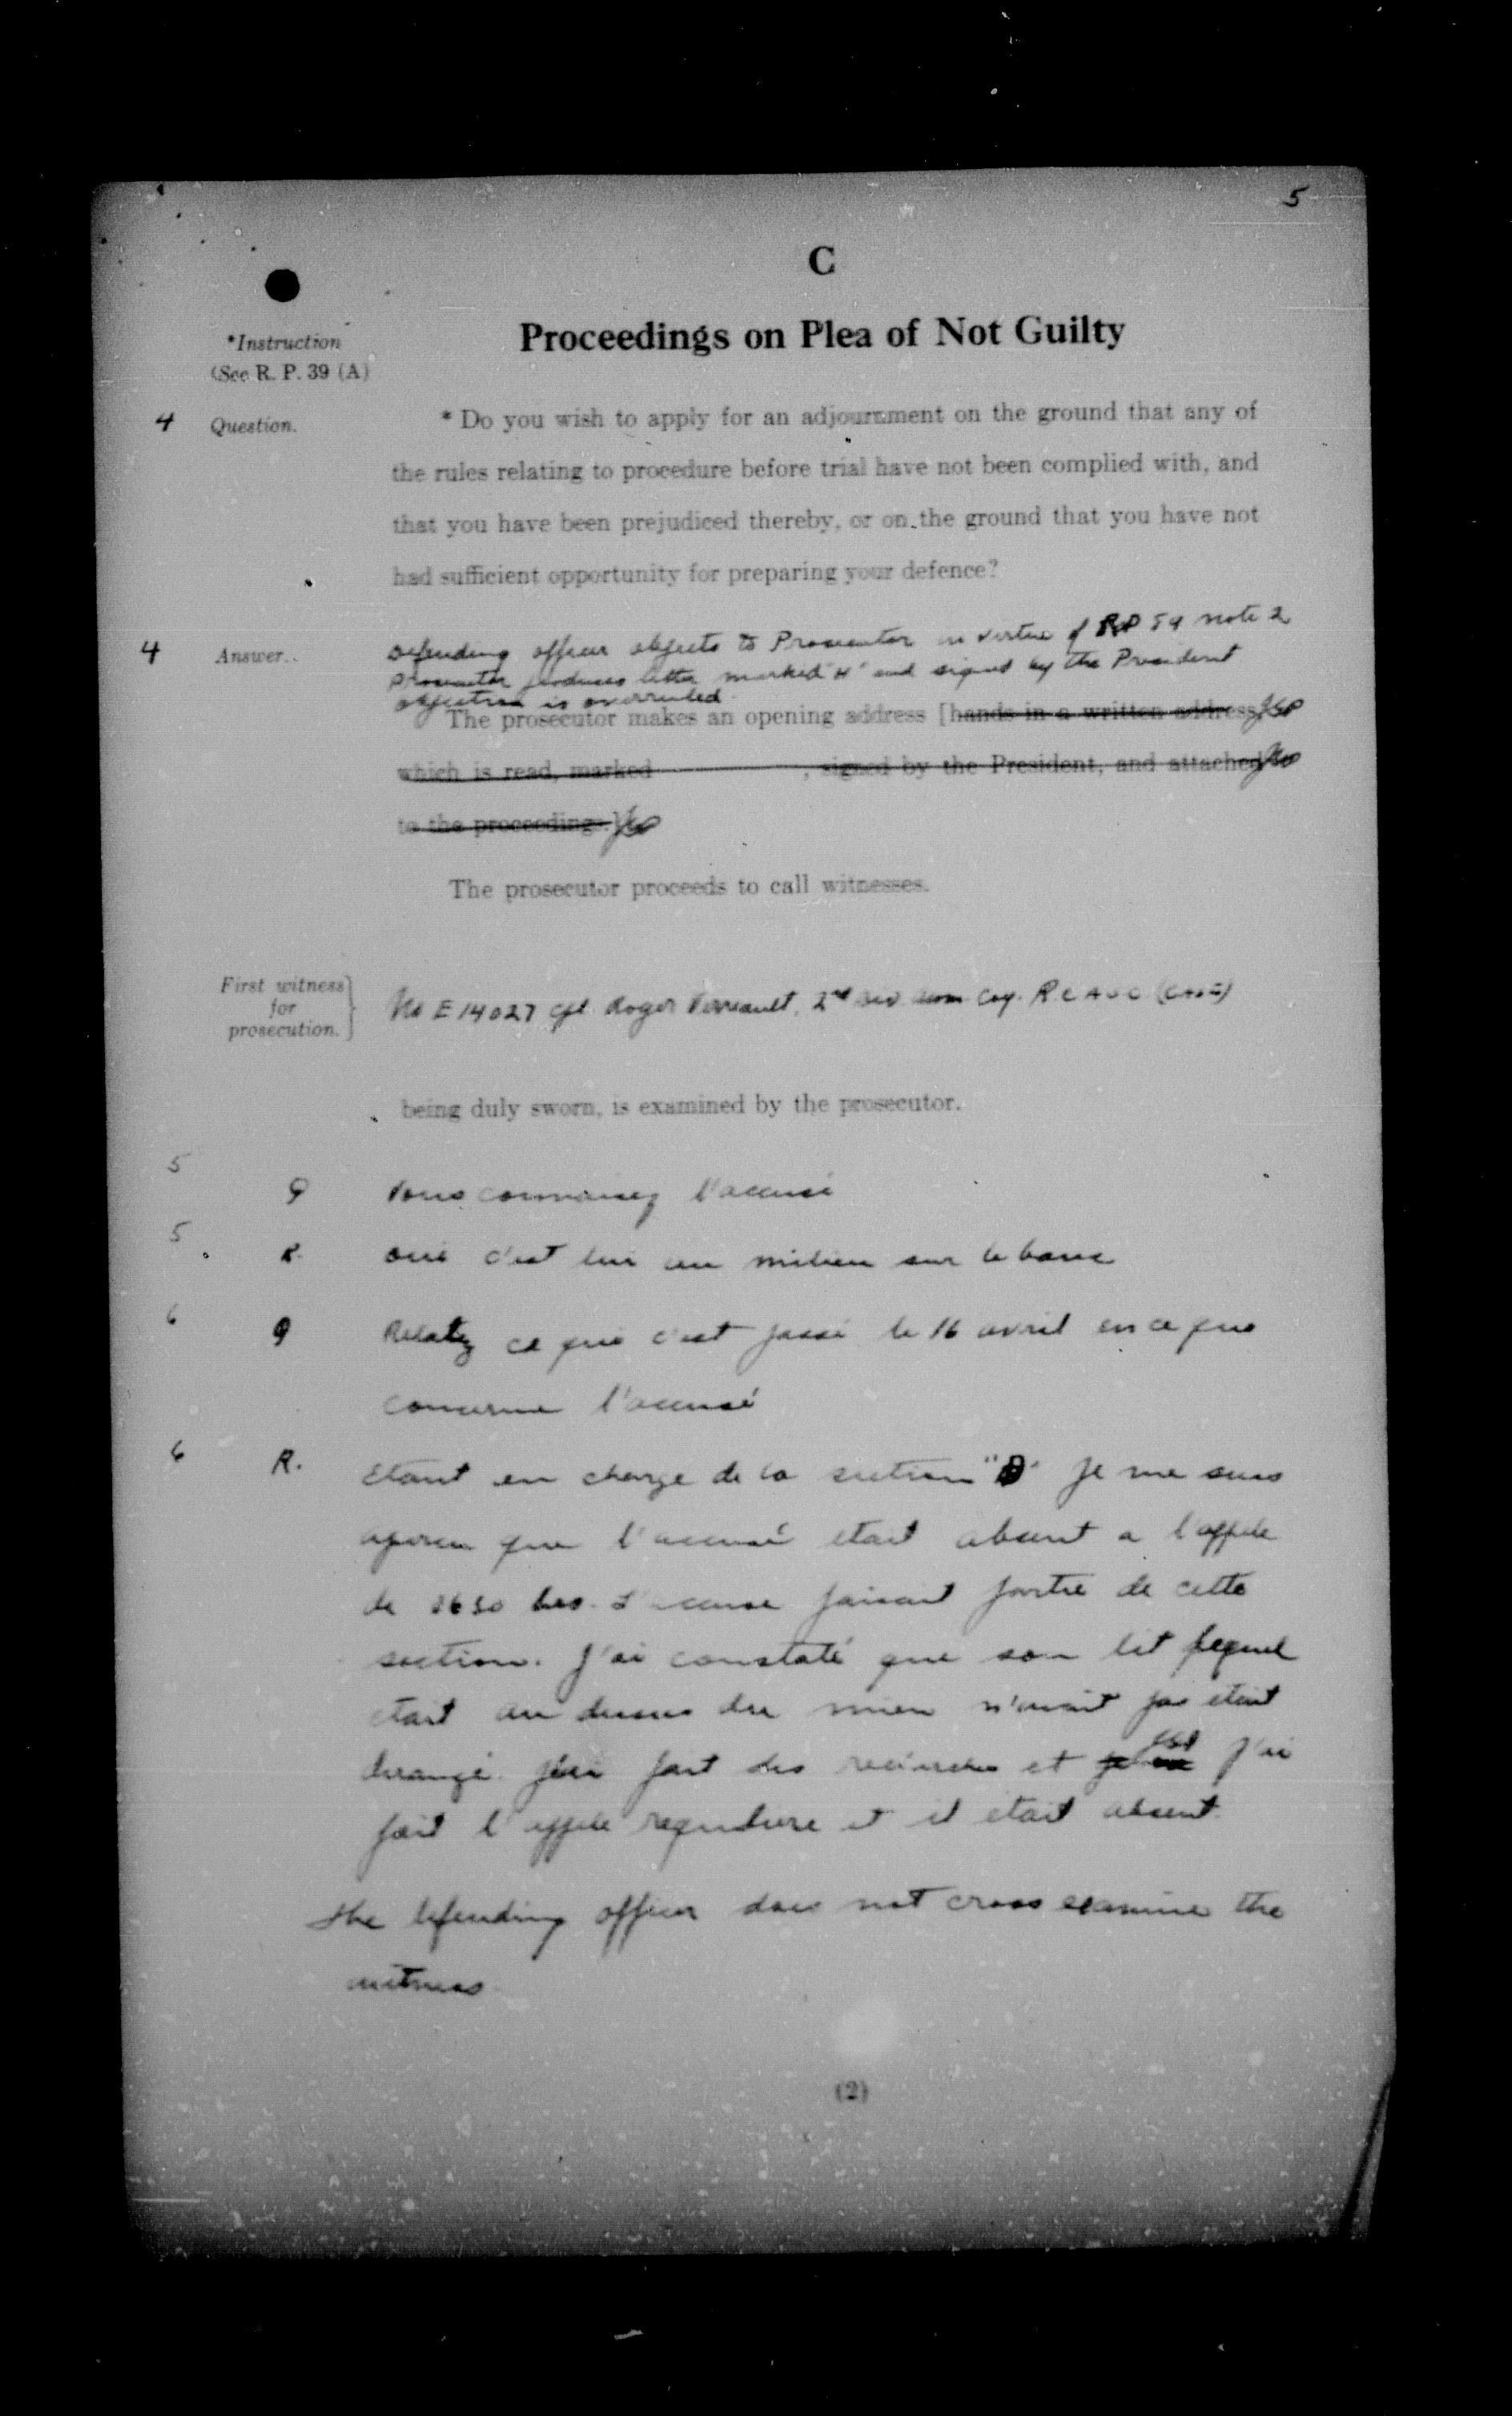 5
C
Proceedings on Plea of Not Guilty
*Instruction
(See R. P. 39 (A)
4 Question. * Do you wish to apply for an adjournment on the ground that any of
the rules relating to procedure before trial have not been complied with, and
that you have been prejudiced thereby, or on the ground that you have not
had sufficient opportunity for preparing your defence?
4 Answer.. Defending officer objects to Prosecutor in virtue of RP 59 note 2
Prosecutor produces letter marked "H" and signed by the President
objection is overruled.
The prosecutor makes an opening address [hands in a written address,
which is read, marked , signed by the President, and attached
to the proceedings.]
The prosecutor proceeds to call witnesses.
First witness
for
prosecution.
No E 14027 Cpl Roger Perreault, 2nd Div Coy. R C A S C (CASF)
being duly sworn, is examined by the prosecutor.
5 Q Vous connaissez l'accusé
5 R. oui c'est lui au milieu sur le banc
6 Q Relatez ce qui c'est passé le 16 avril en ce qui
concerne l'accusé
6 R. Etant en charge de la section "D" je me suis
aperçu que l'accusé etait absent a l'appele
de hrs. L'accuse faisait partie de cette
section. J'ai constaté que son lit lequel
etait au dessus du mien n'avait pas etait
derangé. J'ai fait des recherches et J'ai
fait l'appele reguliere et il etait absent.
The defending officer does not cross examine the
witness
(2)